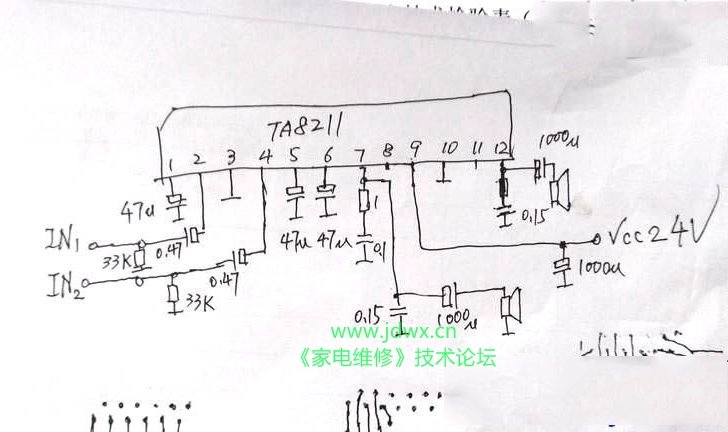 TA8211
1 2 3 4 5 6 7 8 9 10 11 12
1000μ
47u
1
0.15
IN1
0.47
47μ 47μ
0.1
Vcc24V
33K
1000μ
IN2
0.47
33K
0.15
1000μ
www.jdwx.cn
《家电维修》技术论坛